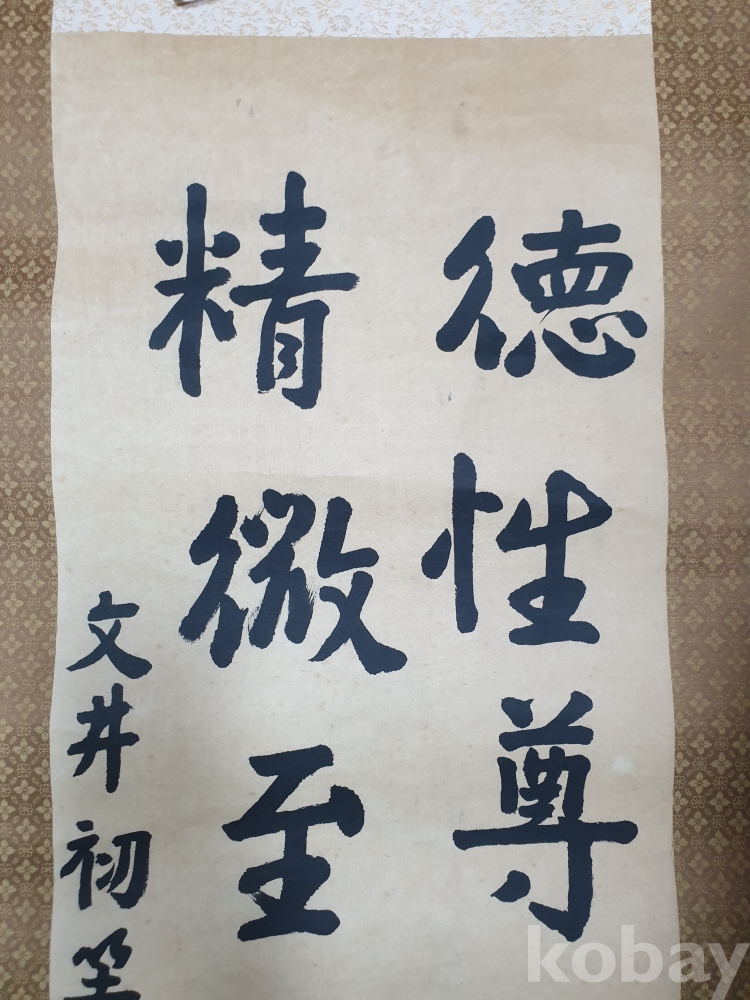 德性尊
精微至
文井初
kobay